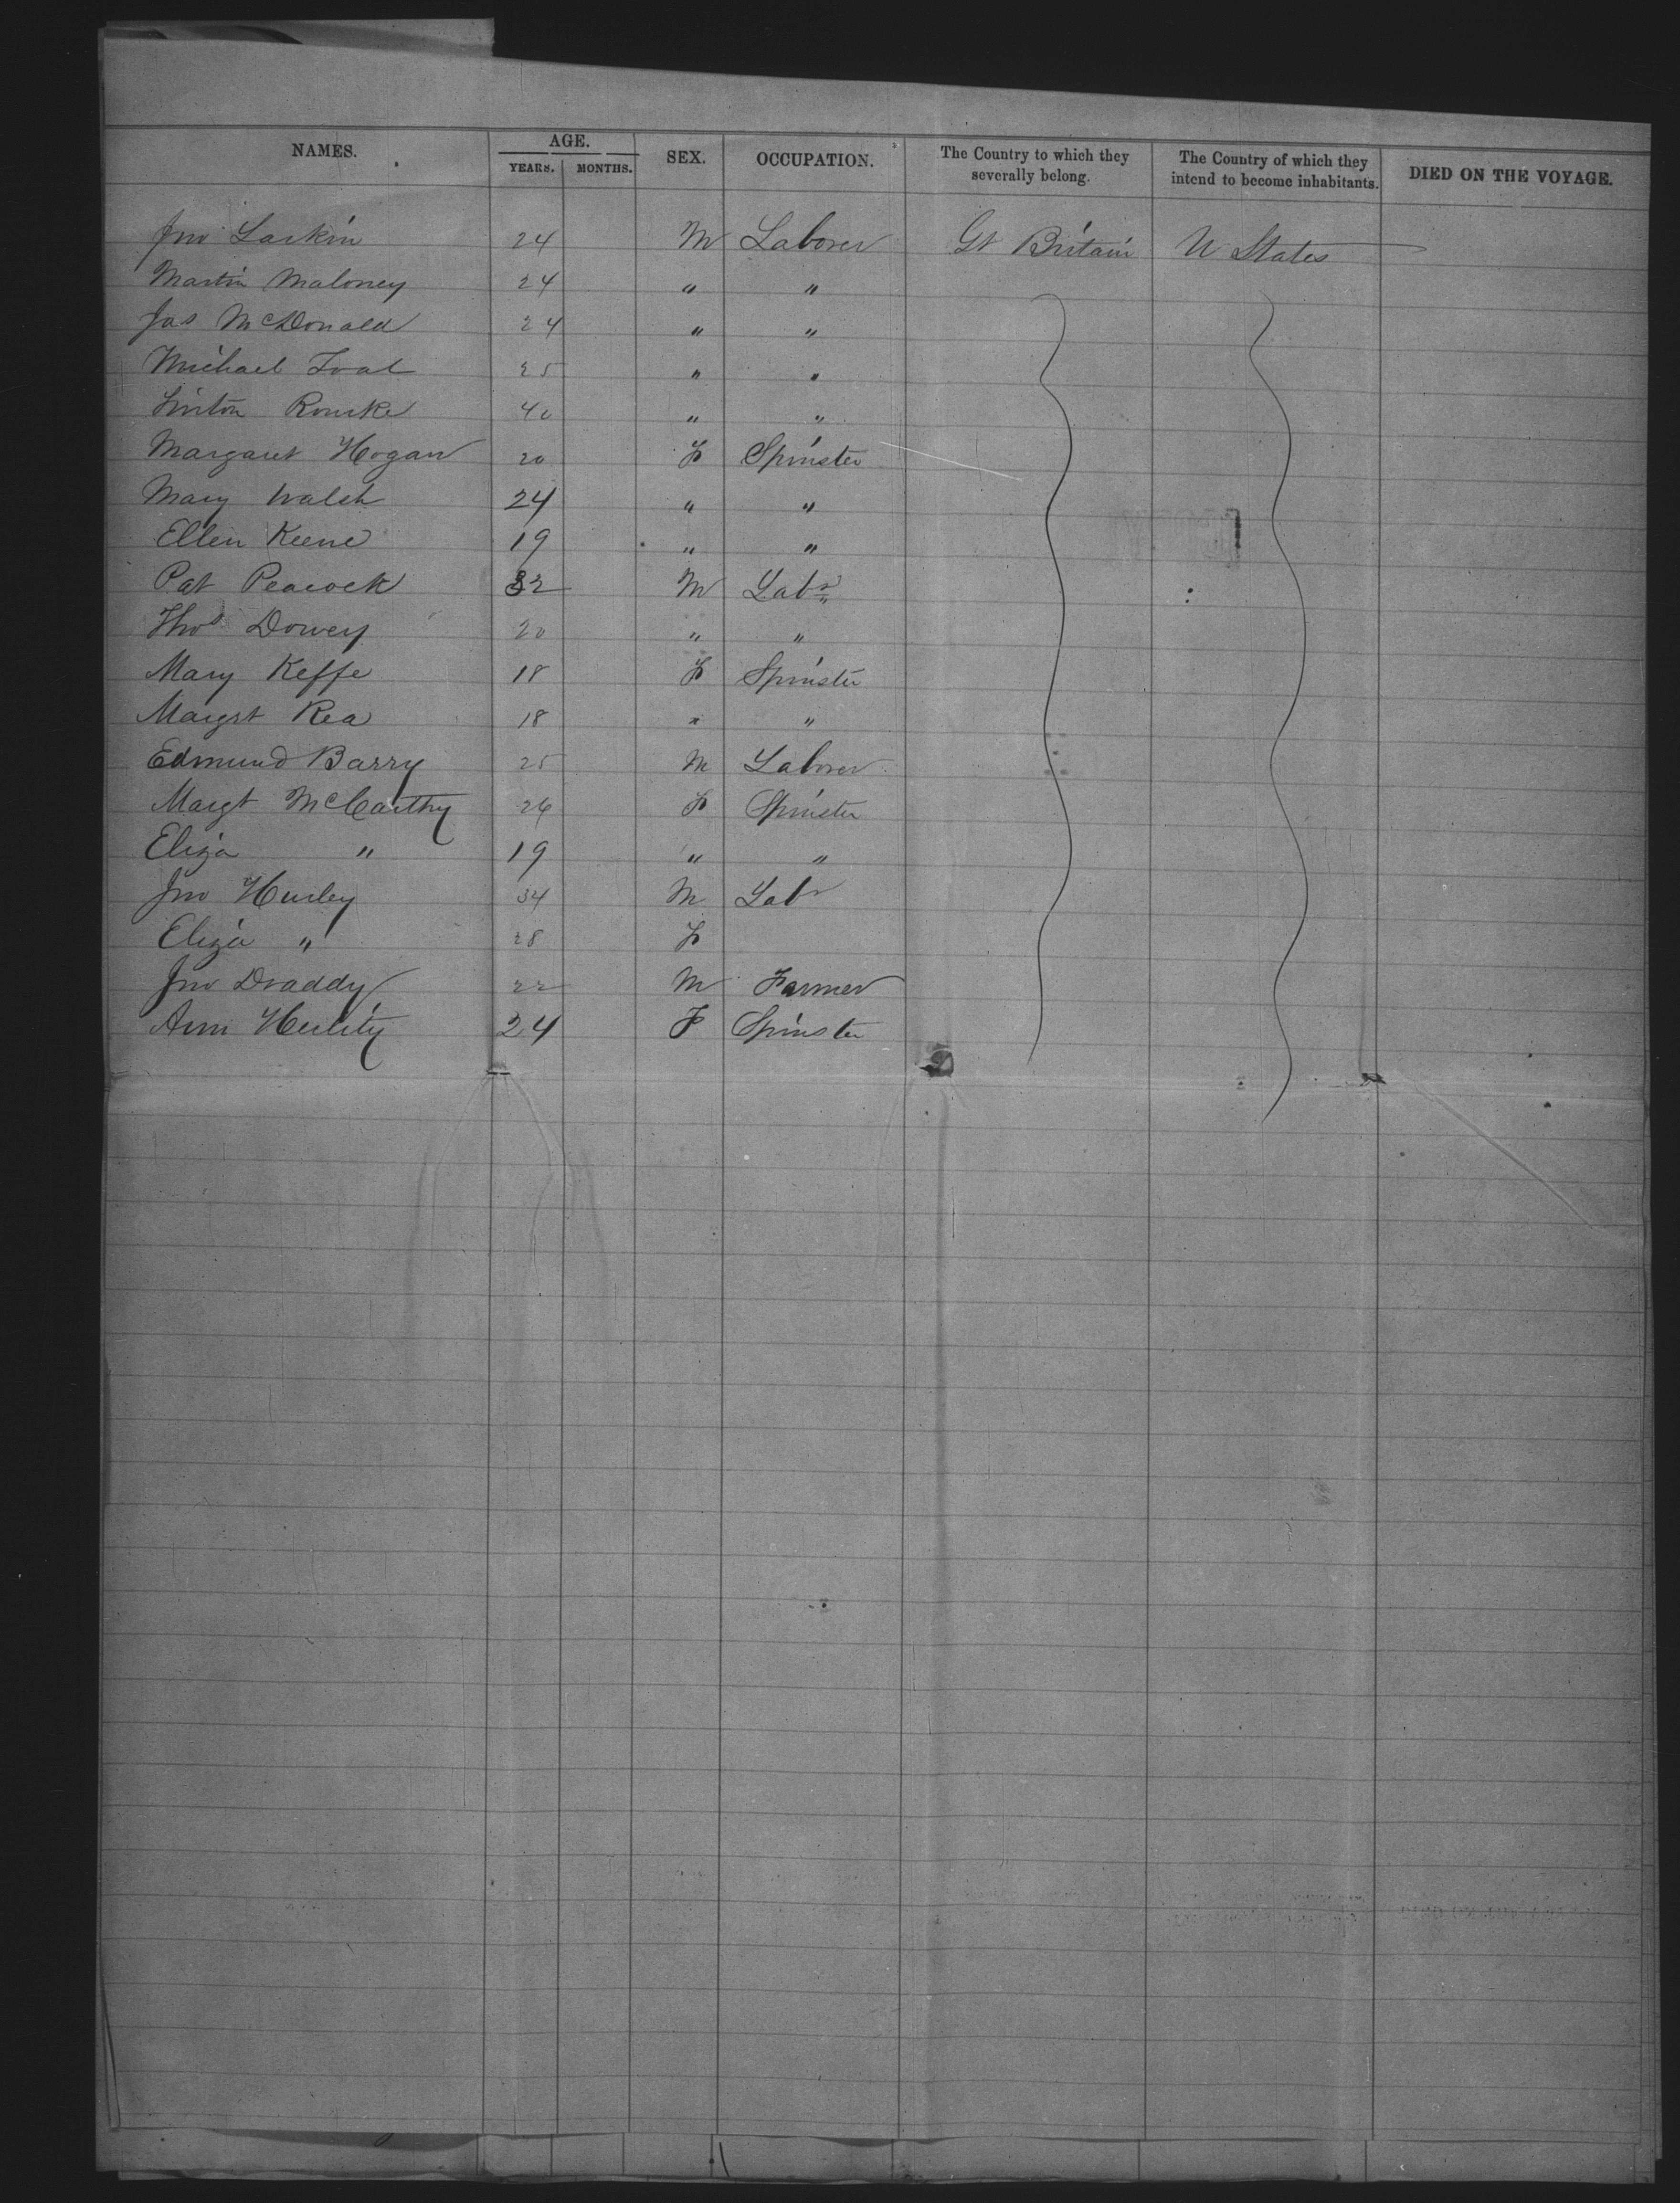 NAMES. AGE. YEARS. MONTHS. SEX. OCCUPATION. The Country to which they severally belong. The Country of which they intend to become inhabitants. DIED ON THE VOYAGE.
Jno Larkin 24 M Laborer Gt Britain U States
Martin Maloney 24 " "
Jas McDonald 24 " "
Michael 25 " "
Rourke 40 " "
Margaret Hogan 20 F Spinster
Mary Walsh 24 " "
Ellen Keene 19 " "
Pat Peacock 32 M Labr
Thos Dowey 20 " "
Mary Keffe 18 F Spinster
Margrt Rea 18 " "
Edmund Barry 25 M Laborer
Margt McCarthy 26 F Spinster
Eliza " 19 " "
Jno Hurley 34 M Labr
Eliza " 28 F
Jno Draddy 22 M Farmer
Ann 24 F Spinster